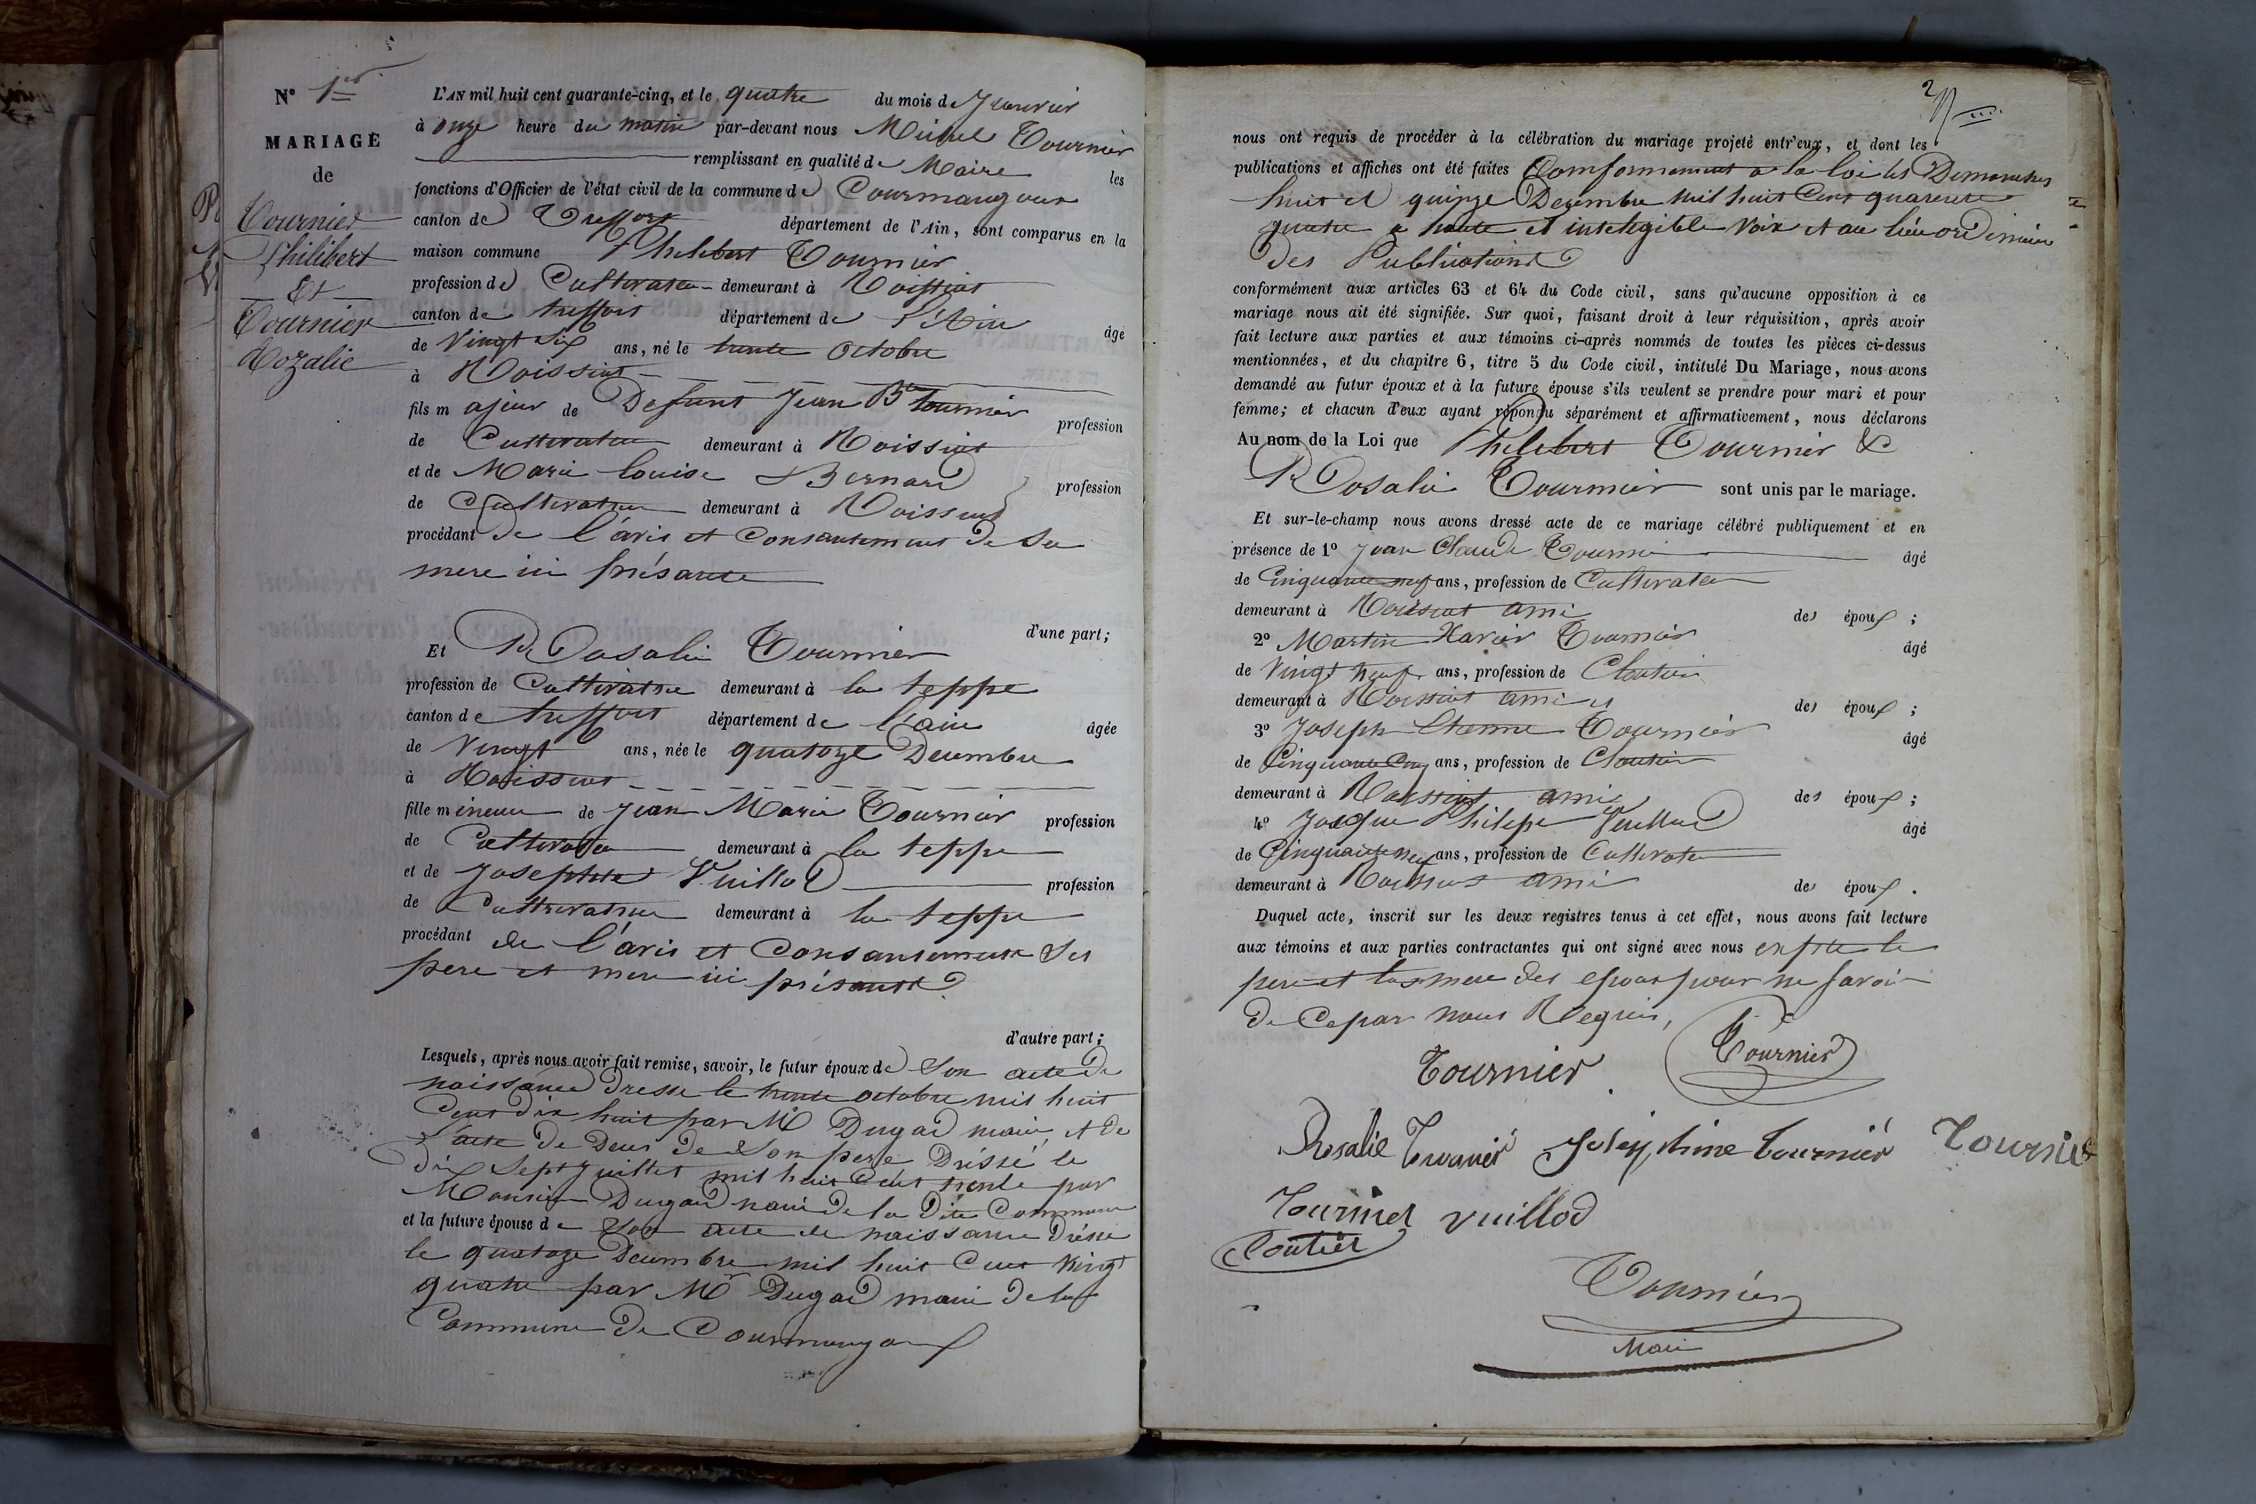 N° 1er
MARIAGE
de
Tournier
Philibert
Et
Tournier
Rozalie
L'AN mil huit cent quarante-cinq, et le quatre du mois de Janvier
à onze heure du matin par-devant nous Michel Tournier
remplissant en qualité de Maire les
fonctions d'Officier de l'état civil de la commune de Courmangoux
canton de Treffort département de l'Ain, sont comparus en la
maison commune Philebert Tournier
profession de Cultivateur demeurant à Roissiat
canton de treffort département de l'Ain âgé
de Vingt Six ans, né le trente Octobre
à Roissiat
fils majeur de Defunt Jean Bte tournier profession
de Cultivateur demeurant à Roissiat
et de Marie Louise Bernard profession
de Cultivatrice demeurant à Roissiat
procédant de l'avis et Consantement de Sa
mere ici présante
d'une part;
Et Rosalie Tournier
profession de Cultivatrice demeurant à la teppe
canton de treffort département de l'ain âgée
de Vingt ans, née le quatoze Decembre
à Roissiat
fille mineure de Jean Marie Tournier profession
de Cultivateur demeurant à la teppe
et de Josephte Vuillod profession
de Cultivatrice demeurant à la teppe
procédant de l'avis et Consantement Ses
pere et mere ici présants
d'autre part;
Lesquels, après nous avoir fait remise, savoir, le futur époux de Son acte de
naissance dresse le trente octobre mil huit
Cent dix huit par Mr Dugad maire et de
l'acte de Deces de Son pere Dréssé le
dix Sept Juillet mil huit Cent trente par
Monsieur Dugad maire de la dite Commune
et la future épouse de Son acte de naissance Drésse
le quatoze Decembre mil huit Cent Vingt
quatre par Mr Dugad maire de la
Commune de Courmangoux
2
nous ont requis de procéder à la célébration du mariage projeté entr'eux, et dont les
publications et affiches ont été faites Comformement a la loi les Dimanches
huit et quinze Dezembre mil huit Cent quarente
quatre a haute et inteligible Voix et au lieu ordinaire
Des Publications
conformément aux articles 63 et 64 du Code civil, sans qu'aucune opposition à ce
mariage nous ait été signifiée. Sur quoi, faisant droit à leur réquisition, après avoir
fait lecture aux parties et aux témoins ci-après nommés de toutes les pièces ci-dessus
mentionnées, et du chapitre 6, titre 5 du Code civil, intitulé Du Mariage, nous avons
demandé au futur époux et à la future épouse s'ils veulent se prendre pour mari et pour
femme; et chacun d'eux ayant répondu séparément et affirmativement, nous déclarons
Au nom de la Loi que Philebert Tournier &
Rosalie Tournier sont unis par le mariage.
Et sur-le-champ nous avons dressé acte de ce mariage célébré publiquement et en
présence de 1° Jean Claude Tournier âgé
de Cinquante neuf ans, profession de Cultivateur
demeurant à Roissiat ami des époux;
2° Martin Xavier Tournier âgé
de Vingt neuf ans, profession de Cloutier
demeurant à Roissiat ami des époux;
3° Joseph Etienne Tournier âgé
de Cinquante Cinq ans, profession de Cloutier
demeurant à Roissiat ami des époux;
4° Josephe Philepe Vuillod âgé
de Cinquante neuf ans, profession de Cultivateur
demeurant à Roissiat ami des époux.
Duquel acte, inscrit sur les deux registres tenus à cet effet, nous avons fait lecture
aux témoins et aux parties contractantes qui ont signé avec nous le
pere et la mere des epoux pour ne Savoir
de Ce par nous Requis,
Tournier Tournier
Rosalie Tournier Josephine tournier Tournier
Tournier vuillod
Cloutier
Tournier
Maire